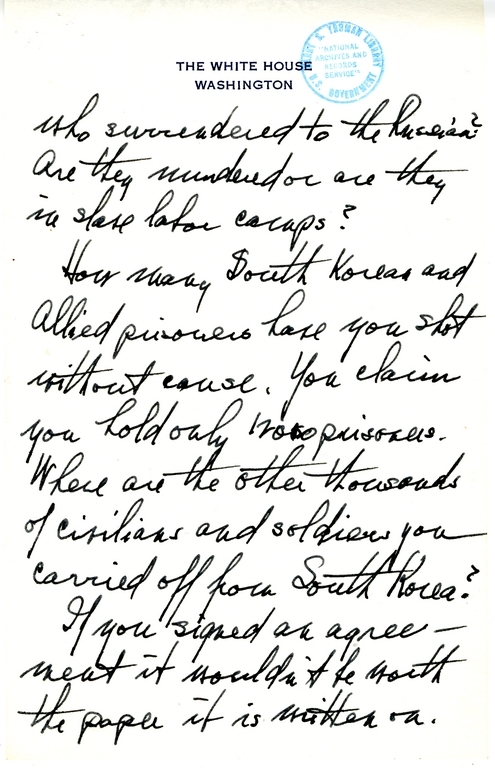 THE WHITE HOUSE
WASHINGTON
HARRY S. TRUMAN LIBRARY
"NATIONAL
ARCHIVES AND
RECORDS
SERVICE"
U.S. GOVERNMENT
who surrendered to the Russians?
Are they murdered or are they
in slave labor camps?
How many South Korean and
Allied prisoners have you shot
without cause. You claim
you hold only 12000 prisoners.
Where are the other thousands
of civilians and soldiers you
carried off from South Korea?
If you signed an agree-
ment it wouldn't be worth
the paper it is written on.